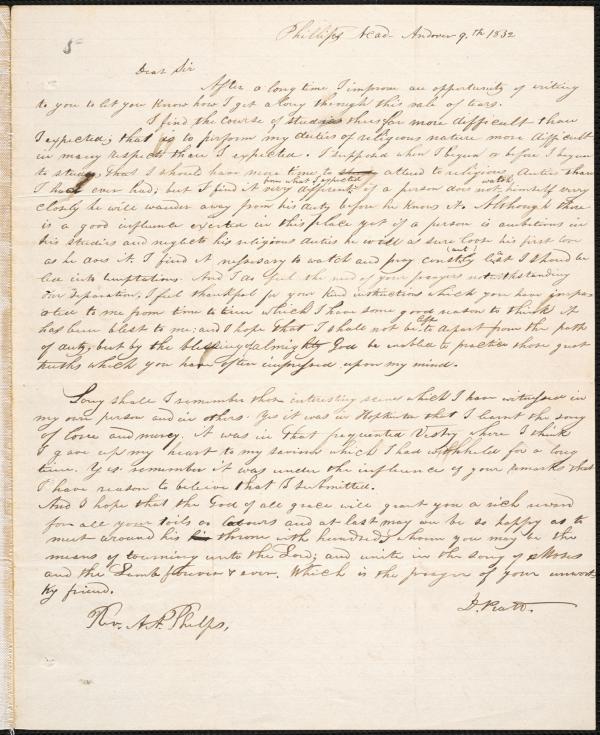 5
Phillips Acad. Andover 9.th 1832
Dear Sir
After a long time I improve an opportunity of writing
to you to let you know how I get along through this vale of tears.
I find the course of studies thus far more difficult than
I expected; that is to perform my duties of religious nature more difficult
in many respects than I expected. I supposed when I began or before I began
to study, that I should have more time to attend to religious duties than
from what I expected watch
I had ever had; but I find it very different if a person does not himself very
closely he will wander away from his duty before he knows it. Although there
is a good influence exerted in this place yet if a person is ambitious in
his studies and neglects his religious duties he will as sure loose his first love
as he does it. I find it necessary to watch and pray constantly lest I should be
led into temptations. And I do feel the need of your prayers notwithstanding
our separation, I feel thankful for your kind instructions which you have impar-
ted to me from time to time which I have some good reason to think it
has been blest to me: and I hope that I shall not be left apart from the path
of duty, but by the blessing of almighty God be enabled to practice those great
truths which you have often impressed upon my mind.
Long shall I remember those interesting scenes which I have witnessed in
my own person and in others. Yes it was in Hopkinton that I learnt the song
of love and mercy. it was in that frequented Vestry where I think
I gave up my heart to my saviour which I had withheld for a long
time. Yes. remember it was under the influence of your remarks that
I have reason to believe that I submitted.
And I hope that the God of all grace will grant you a rich reward
for all your toils or labours and at last may we be so happy as to
meet around his throne with hundreds whom you may be the
means of tourning unto the Lord; and unite in the song of Moses
and the Lamb forever & ever. Which is the prayer of your unwor-
thy friend.
Rev. A. A. Phelps,